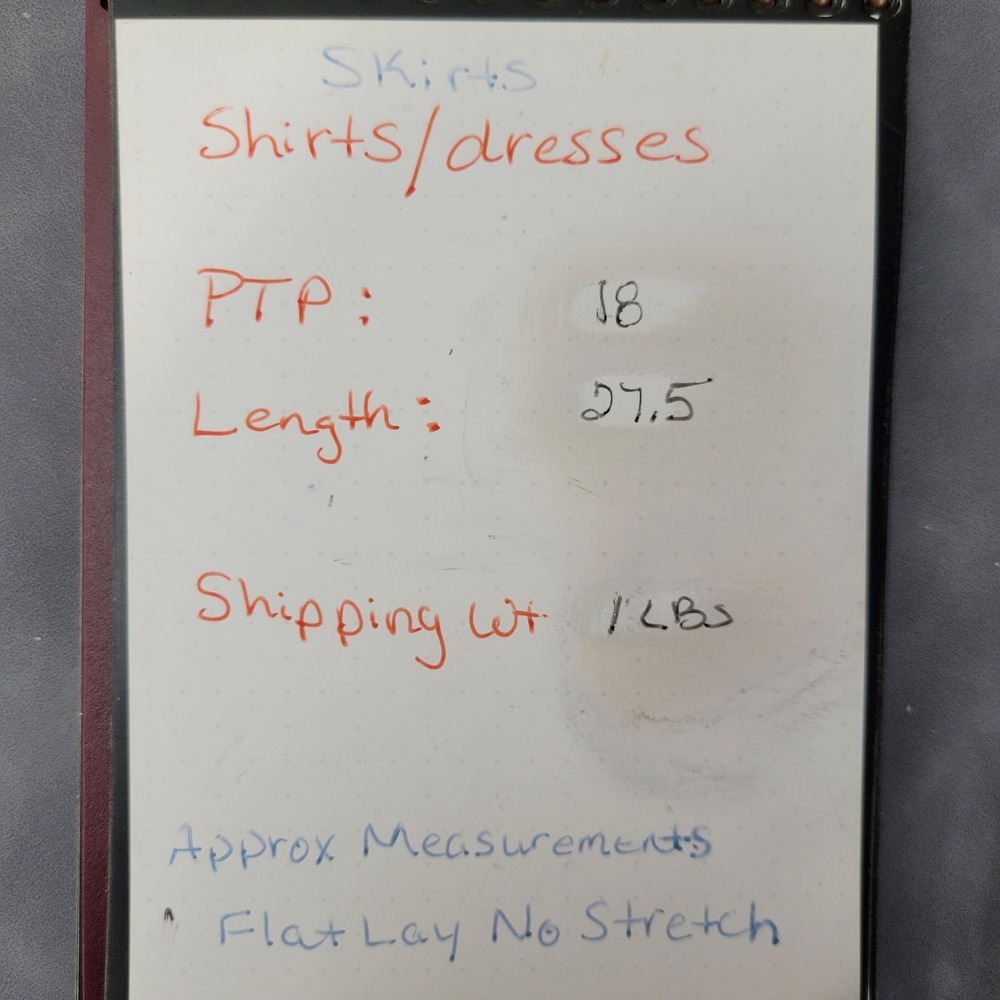 Skirts
Shirts/dresses
PTP: 18
Length: 27.5
Shipping Wt 1 LBS
Approx Measurements
Flat Lay No Stretch